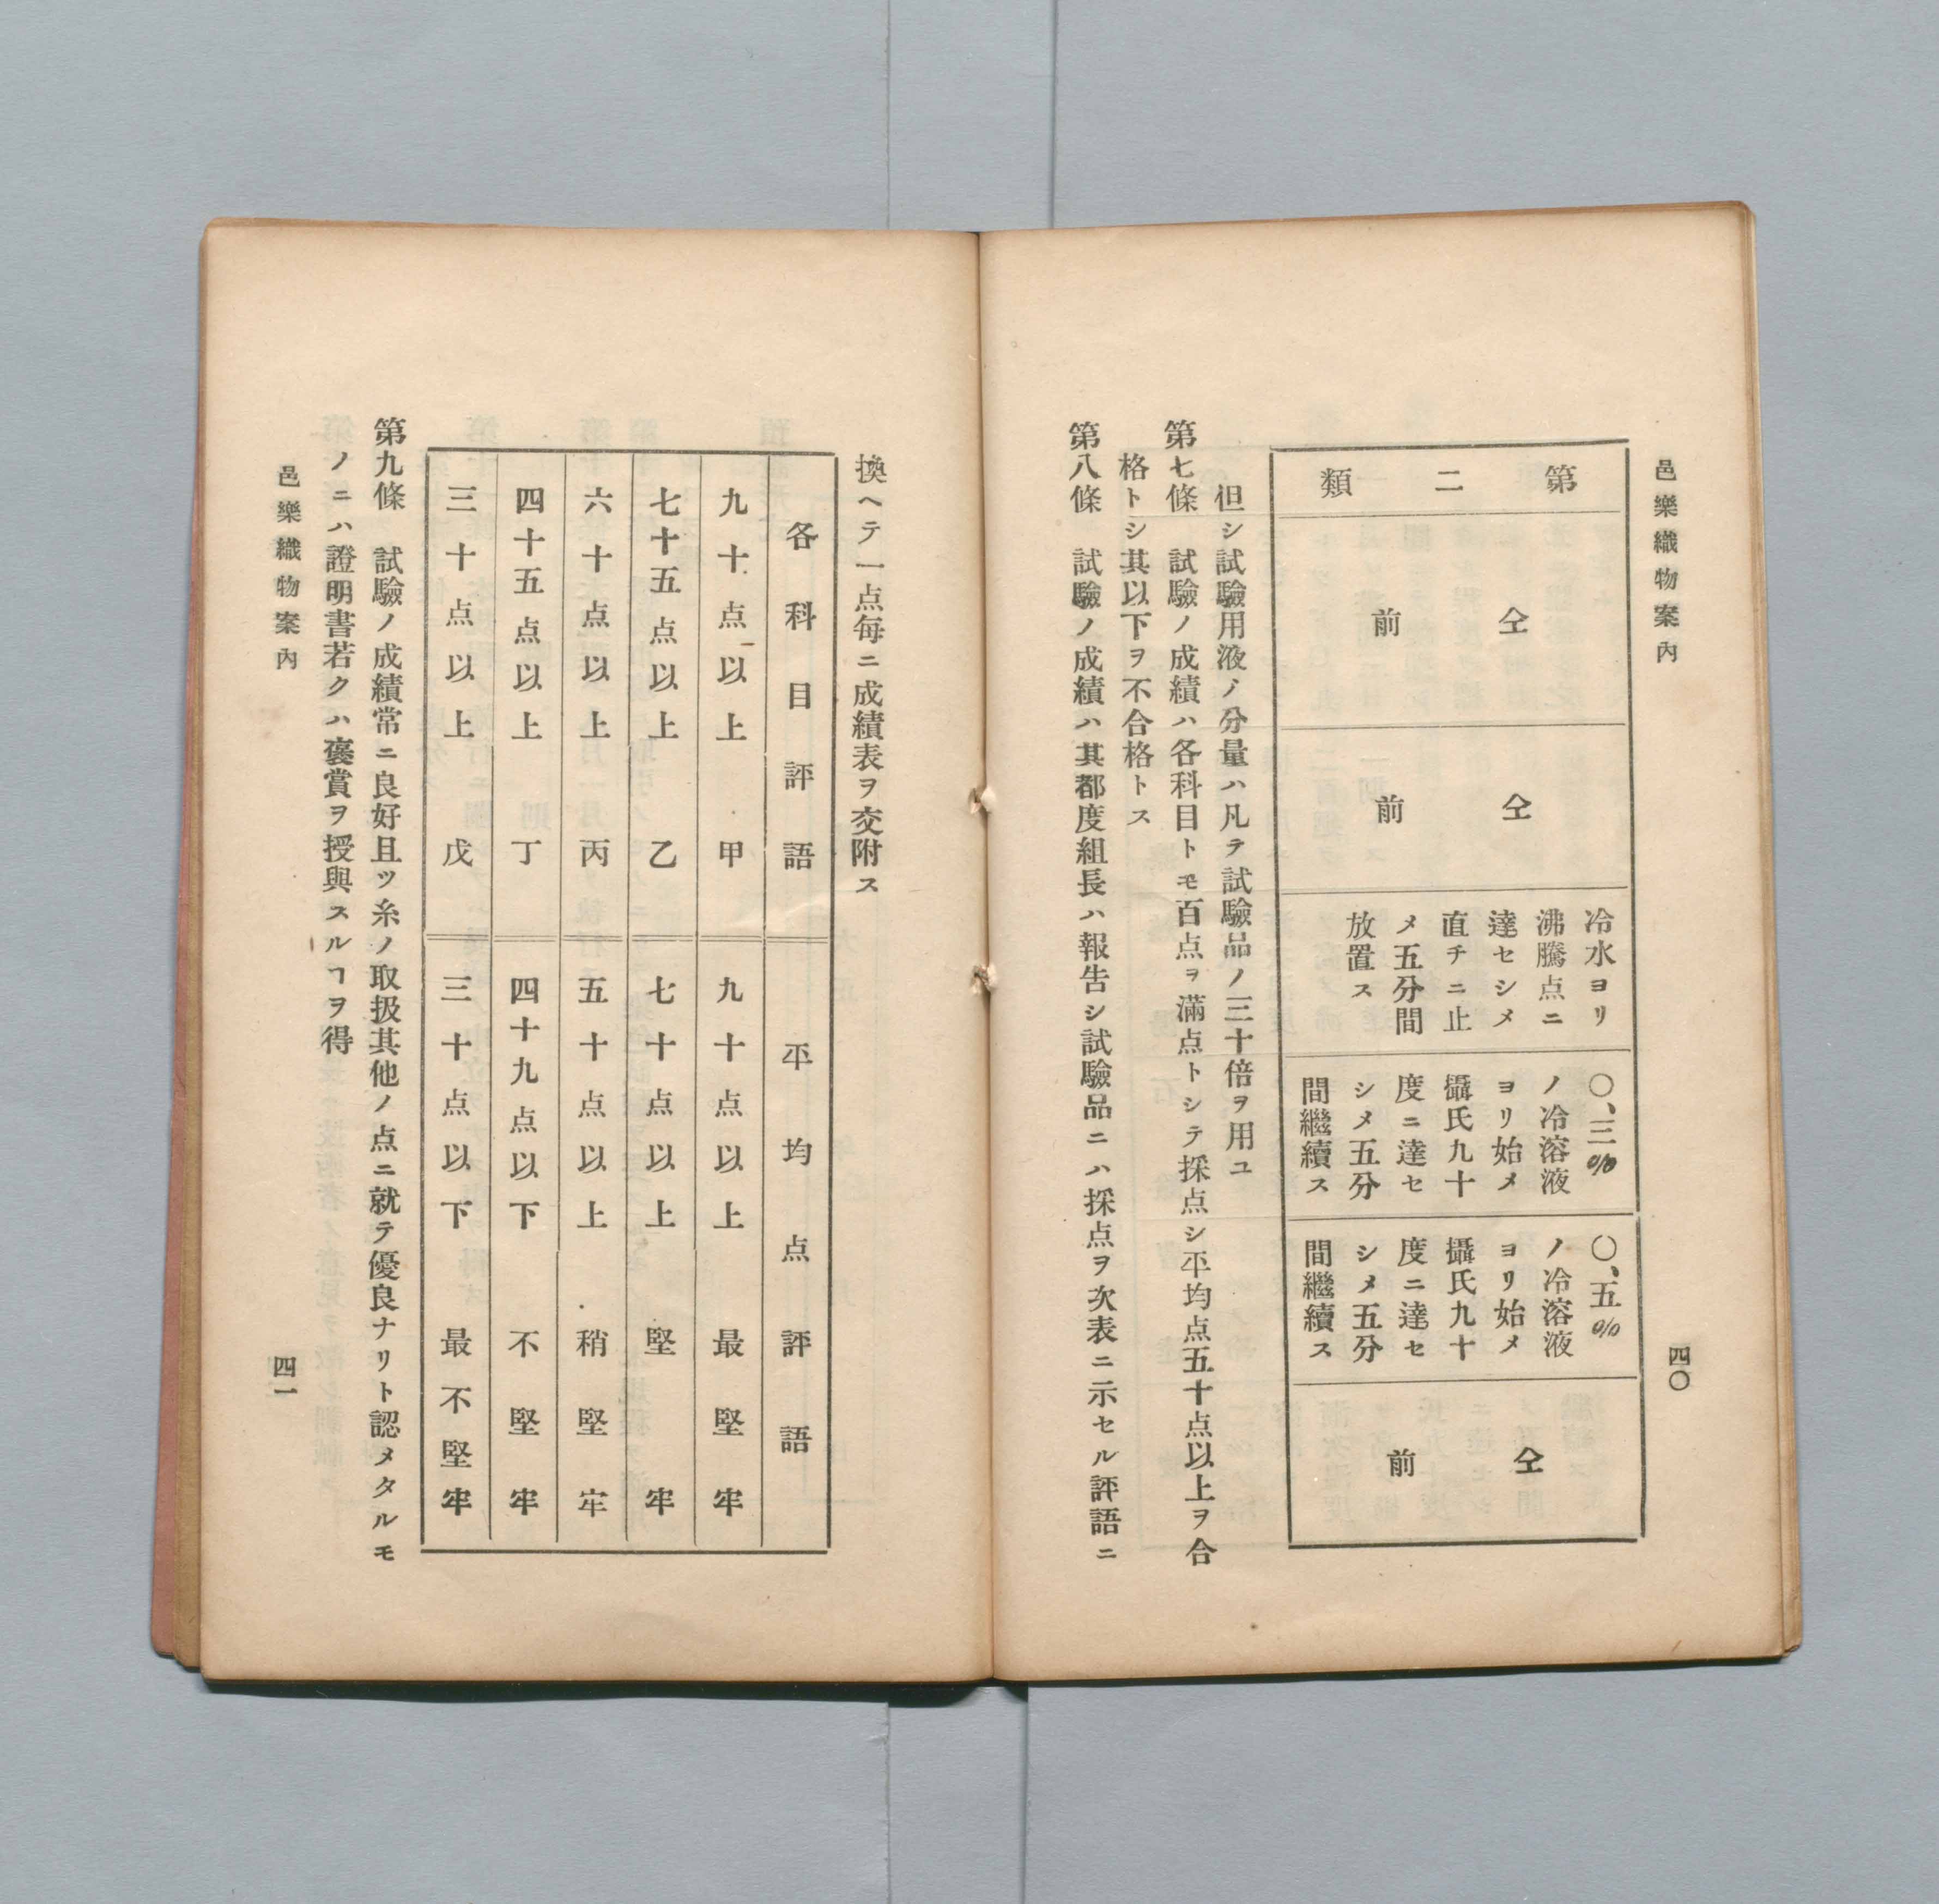 邑樂織物案內
四〇
第二類
仝前
仝前
冷水ヨリ
沸騰点ニ
達セシメ
直チニ止
メ五分間
放置ス
〇、三%
ノ冷溶液
ヨリ始メ
攝氏九十
度ニ達セ
シメ五分
間繼續ス
〇、五%
ノ冷溶液
ヨリ始メ
攝氏九十
度ニ達セ
シメ五分
間繼續ス
仝前
但シ試驗用液ノ分量ハ凡テ試驗品ノ三十倍ヲ用ユ
第七條　試驗ノ成績ハ各科目トモ百点ヲ滿点トシテ採点シ平均点五十点以上ヲ合
格トシ其以下ヲ不合格トス
第八條　試驗ノ成績ハ其都度組長ハ報告シ試驗品ニハ採点ヲ次表ニ示セル評語ニ
換ヘテ一点每ニ成績表ヲ交附ス
各科目評語
平均点評語
九十点以上　甲
九十点以上　最堅牢
七十五点以上　乙
七十点以上　堅牢
六十点以上　丙
五十点以上　稍堅牢
四十五点以上　丁
四十九点以下　不堅牢
三十点以上　戊
三十点以下　最不堅牢
第九條　試驗ノ成績常ニ良好且ツ糸ノ取扱其他ノ点ニ就テ優良ナリト認メタルモ
ノニハ證明書若クハ褒賞ヲ授與スルヿヲ得
邑樂織物案內
四一